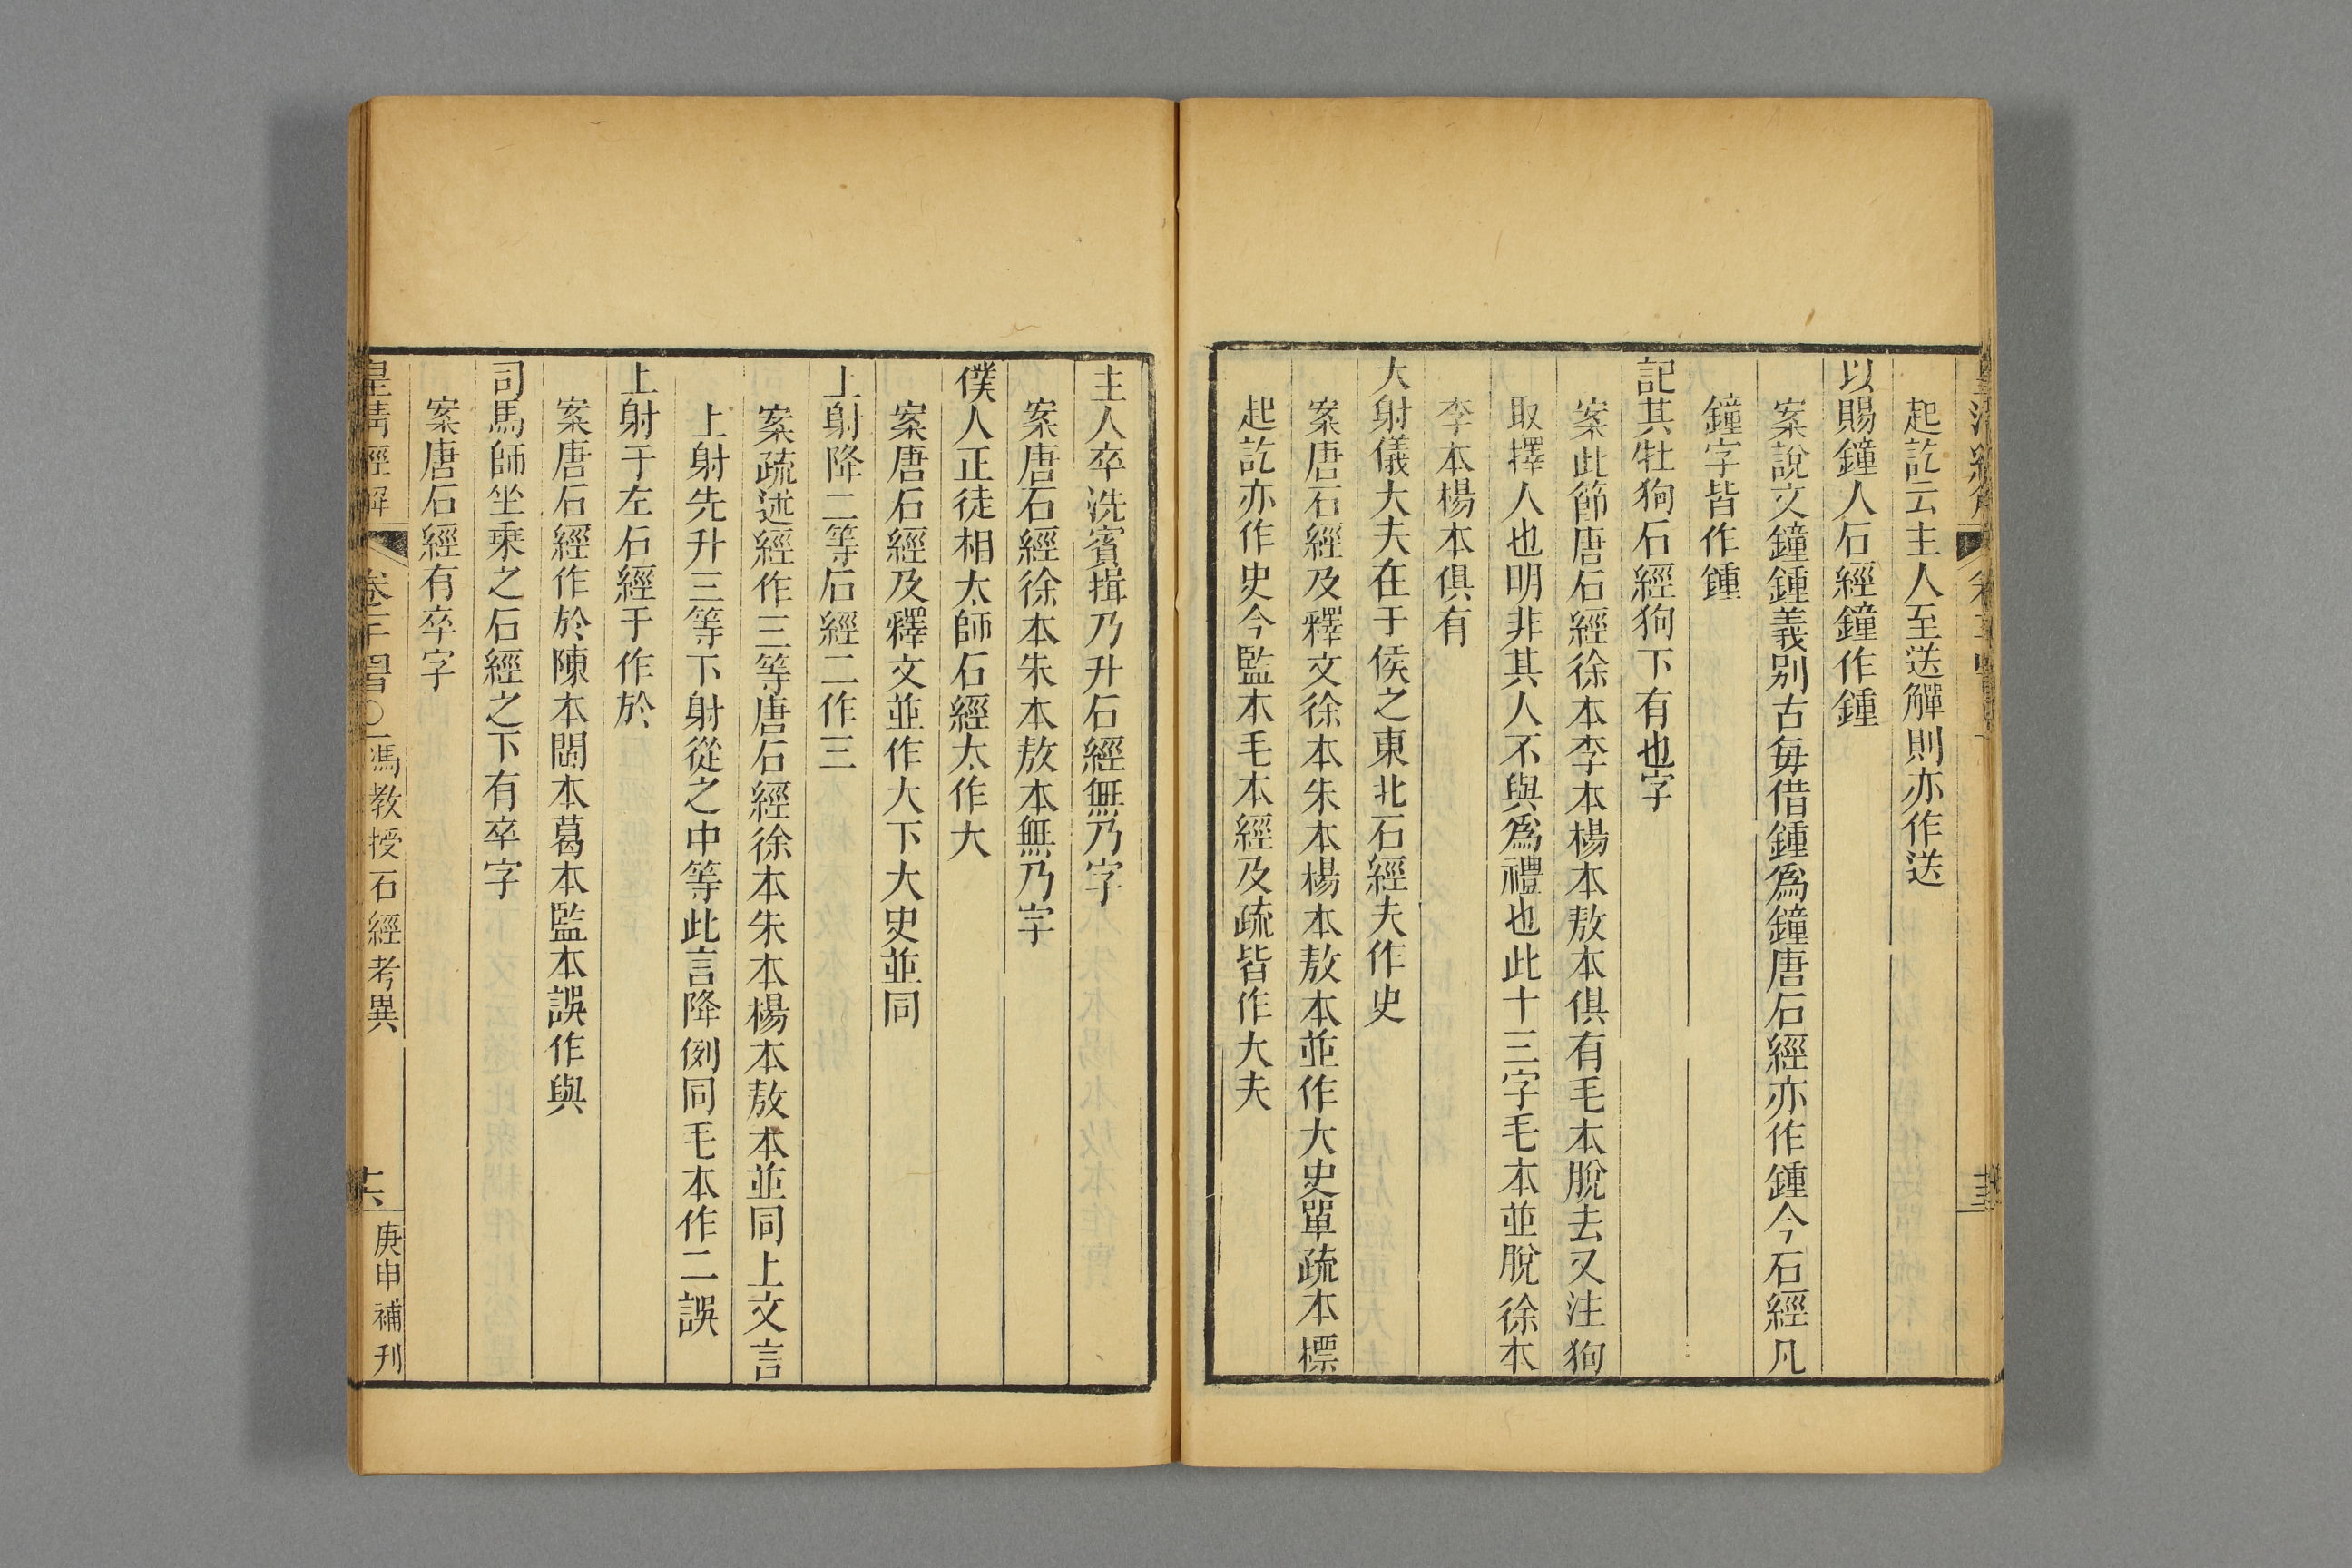 起訖云主人至送觶則亦作送
以賜鐘人石經鐘作鍾
案說文鐘鍾義别古每借鍾爲鐘唐石經亦作鍾今石經凡
鐘字皆作鍾
記其牡狗石經狗下有也字
案此節唐石經徐本李本楊本敖本俱有毛本脫去又注狗
取擇人也明非其人不與爲禮也此十三字毛本並脫徐本
李本楊本俱有
大射儀大夫在于侯之東北石經夫作史
案唐石經及釋文徐本朱本楊本敖本並作大史單疏本標
起訖亦作史今監本毛本經及疏皆作大夫
主人卒洗賓揖乃升石經無乃字
案唐石經徐本朱本敖本無乃字
僕人正徒相太師石經太作大
案唐石經及釋文並作大下大史並同
上射降二等石經二作三
案疏述經作三等唐石經徐本朱本楊本敖本並同上文言
上射先升三等下射從之中等此言降例同毛本作二誤
上射于左石經于作於
案唐石經作於陳本閩本葛本監本誤作與
司馬師坐乘之石經之下有卒字
案唐石經有卒字
皇清經解
卷
馮教授石經考異
十六
庚申補刊